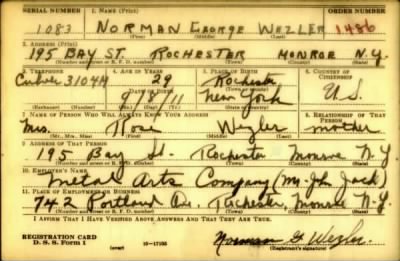 SERIAL NUMBER 1. NAME (Print) ORDER NUMBER
1083 NORMAN GEORGE WEZLER 1486
(First) (Middle) (Last)
2. ADDRESS (Print)
195 BAY ST. ROCHESTER MONROE N.Y.
(Number and street or R. F. D. number) (Town) (County) (State)
3. TELEPHONE 4. AGE IN YEARS 5. PLACE OF BIRTH 6. COUNTRY OF CITIZENSHIP
Culver 3104M 29 Rochester
DATE OF BIRTH (Town or county)
New York U.S.
(Exchange) (Number) (Mo.) (Day) (Yr.) (State or country)
7. NAME OF PERSON WHO WILL ALWAYS KNOW YOUR ADDRESS 8. RELATIONSHIP OF THAT PERSON
Mrs. Rose Wezler mother
(Mr., Mrs., Miss) (First) (Middle) (Last)
9. ADDRESS OF THAT PERSON
195 Bay St. Rochester Monroe N.Y.
(Number and street or R. F. D. number) (Town) (County) (State)
10. EMPLOYER'S NAME
Metal Arts Company (Mr. John Jack)
11. PLACE OF EMPLOYMENT OR BUSINESS
742 Portland Ave. Rochester, Monroe N.Y.
(Number and street or R. F. D. number) (Town) (County) (State)
I AFFIRM THAT I HAVE VERIFIED ABOVE ANSWERS AND THAT THEY ARE TRUE.
REGISTRATION CARD
D. S. S. Form 1 (over) 16—17105 Norman G Wezler
(Registrant's signature)